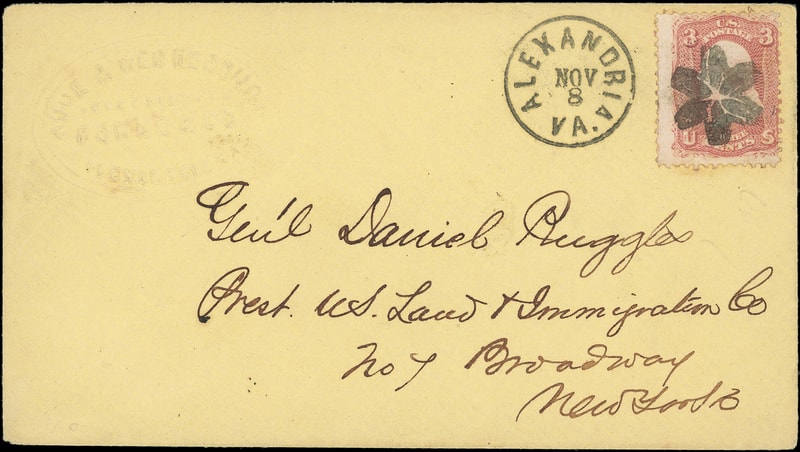 ALEXANDRIA
NOV
8
VA.
3 U.S. 3
POSTAGE
U S
CENTS
Gen'l Daniel Ruggles
Prest. U.S. Land & Immigration Co
No 7 Broadway
New York